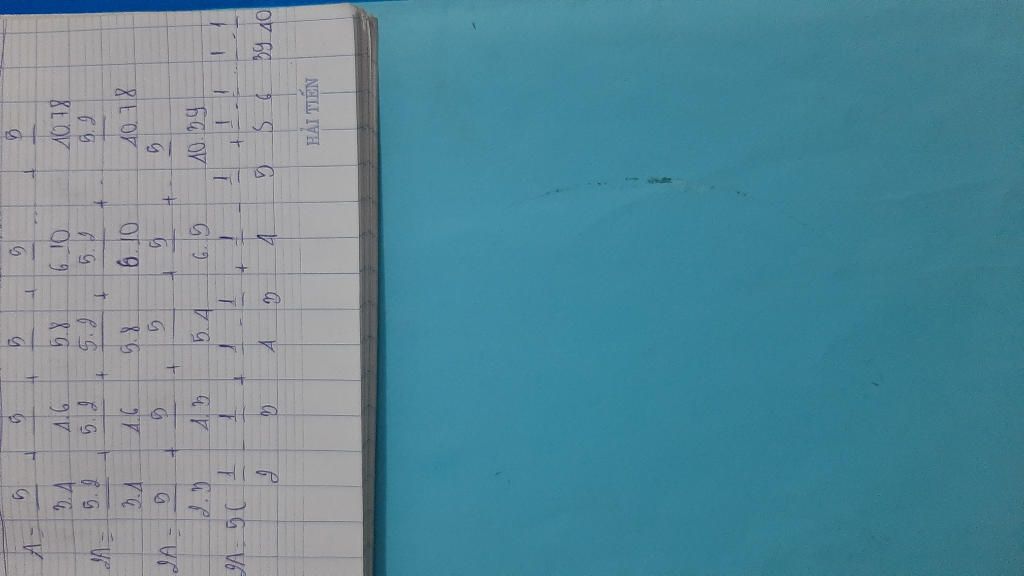 A = 5/3.4 + 5/4.6 + 5/5.8 + 5/6.10 + ... + 5/40.78
2A = 5.2/3.4 + 5.2/4.6 + 5.2/5.8 + 5.2/6.10 + ... + 5.2/40.78
2A = 5/2.3 + 5/4.3 + 5/5.4 + 5/6.5 + ... + 5/40.39
2A = 5( 1/2 - 1/3 + 1/4 - 1/3 + 1/4 - 1/5 + 1/5 - 1/6 ... 1/39 - 1/40
HẢI TIẾN